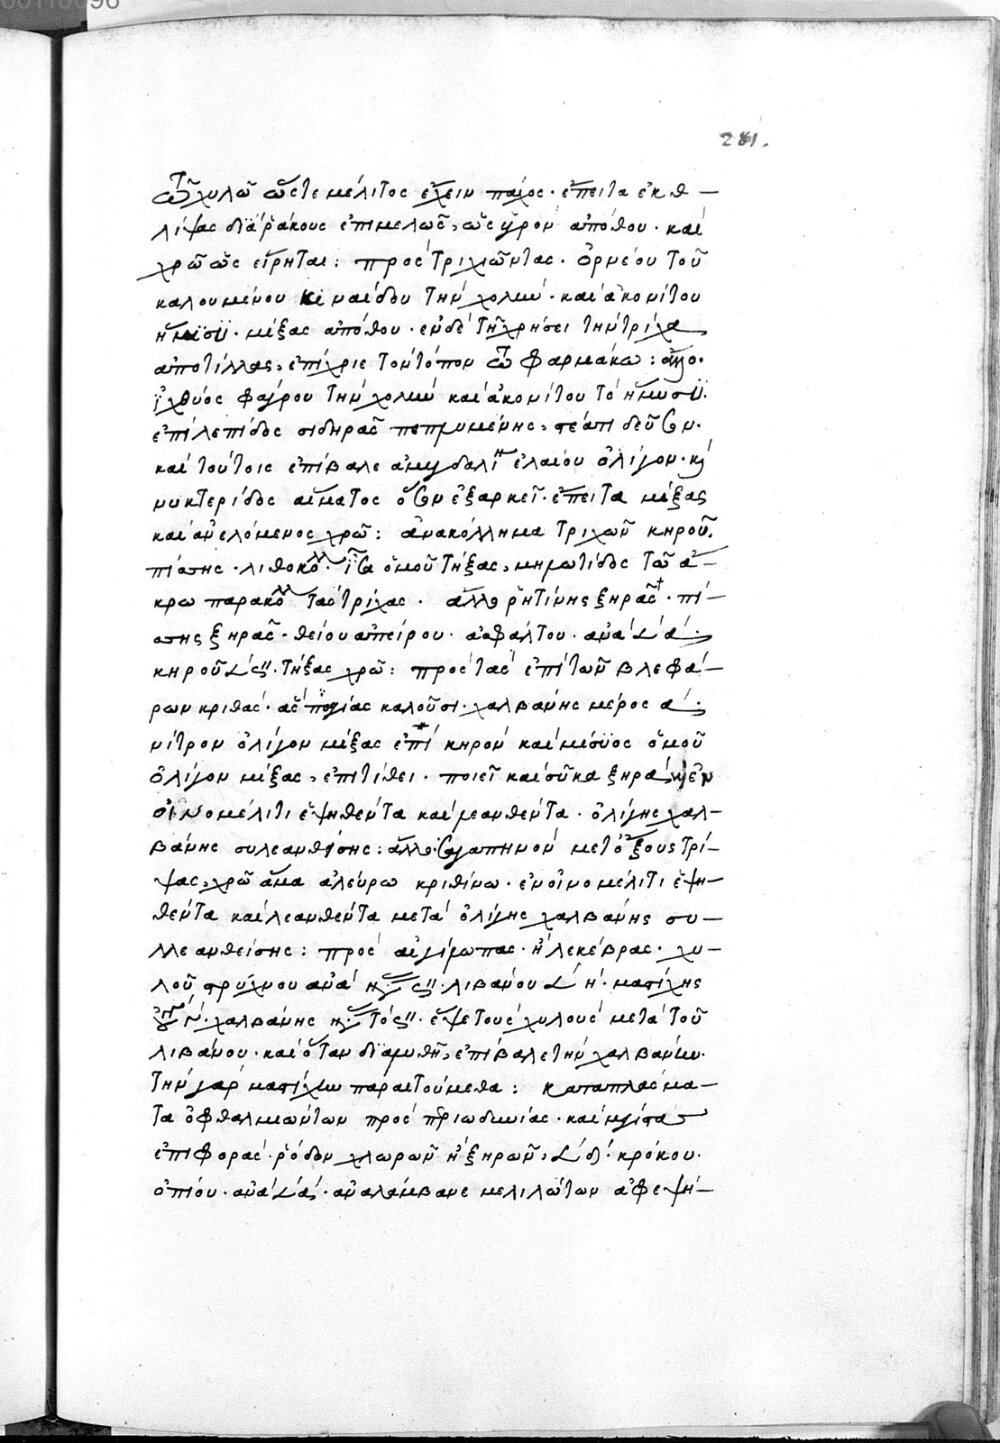 281.
τῶ χυλῶ ὥστε μέλιτος ἔχειν πάχος· ἔπειτα ἐκθ–
λίψας διὰ ῥάκους ἐπιμελῶς, ὡς ὑγρὸν ἀπόθου· καὶ
χρῶ ὡς εἴρηται: πρὸς τριχιῶντας· ὀρνέου τοῦ
καλουμένου κιναίδου τὴν χολὴν· καὶ ἀκονίτου
ἥμισυ· μίξας ἀπόθου· ἐν δὲ τῇ χρήσει τὴν τρίχα
ἀποτίλλας, ἐπίχριε τὸν τόπον τῶ φαρμάκω: ἄλλο·
ἰχθύος φάγρου τὴν χολὴν καὶ ἀκονίτου τὸ ἥμισυ.
ἐπὶ λεπίδος σιδηρᾶς
καὶ τούτοις ἐπίβαλε ἀμυγδαλι ἐλαίου ὀλίγον· κὶ
νυκτερίδος αἵματος ὅσον ἐξαρκεῖ· ἔπειτα μίξας
καὶ ἀνελόμενος χρῶ: ἀνακόλλημα τριχῶν κηροῦ.
πίσσης· λιθοκολλ ἴσα ὁμοῦ τήξας, μηλωτίδος τῶ ἄ–
κρω παρακολλ τὰς τρίχας· ἄλλο ῥητίνης ξηρᾶς· πί–
σσης ξηρᾶς· θείου ἀπείρου· ἀσφάλτου· ἀνὰ 𐅻 ά.
κηροῦ 𐅻 ς΄΄· τήξας χρῶ: πρὸς τὰς ἐπὶ τῶν βλεφά–
ρων κριθάς· ἃς ποσθίας καλοῦσι· χαλβάνης μέρος ά.
νίτρον ὀλίγον μίξας ἐπὶ κηρὸν καὶ μίσυος ὁμοῦ
ὀλίγον μίξας, ἐπιτίθει· ποιεῖ καὶ σῦκα ξηρὰ ἐν
οἰνομέλιτι ἑψηθέντα καὶ λεανθέντα· ὀλίγης χαλ–
βάνης συλεανθείσης: ἄλλο· σαγαπηνὸν μετ' ὄξους τρί–
ψας, χρῶ ἅμα ἀλεύρω κριθίνω· ἐν οἰνομέλιτι ἑψη–
θέντα καὶ λεανθέντα μετὰ ὀλίγης χαλβάνης συ–
λλεανθείσης: πρὸς αἰγίλωπας· ἠλεκέβρας· χυ–
λοῦ στρύχνου ἀνὰ λιβάνου 𐅻 ή· μαστίχης
χαλβάνης ἕψε τοὺς χυλοὺς μετὰ τοῦ
λιβάνου· καὶ ὅταν ἐπίβαλε τὴν χαλβάνην.
τὴν γὰρ μαστίχην παραιτούμεθα: καταπλάσμα–
τα ὀφθαλμώντων πρὸς περιωδυνίας· καὶ μεγίστας
ἐπιφοράς· ῥόδων χλωρῶν ἢ ξηρῶν, 𐅻 δ΄· κρόκου·
ὀπίου· ἀνὰ 𐅻 ά· ἀναλάμβανε μελιλώτων ἀφεψή–